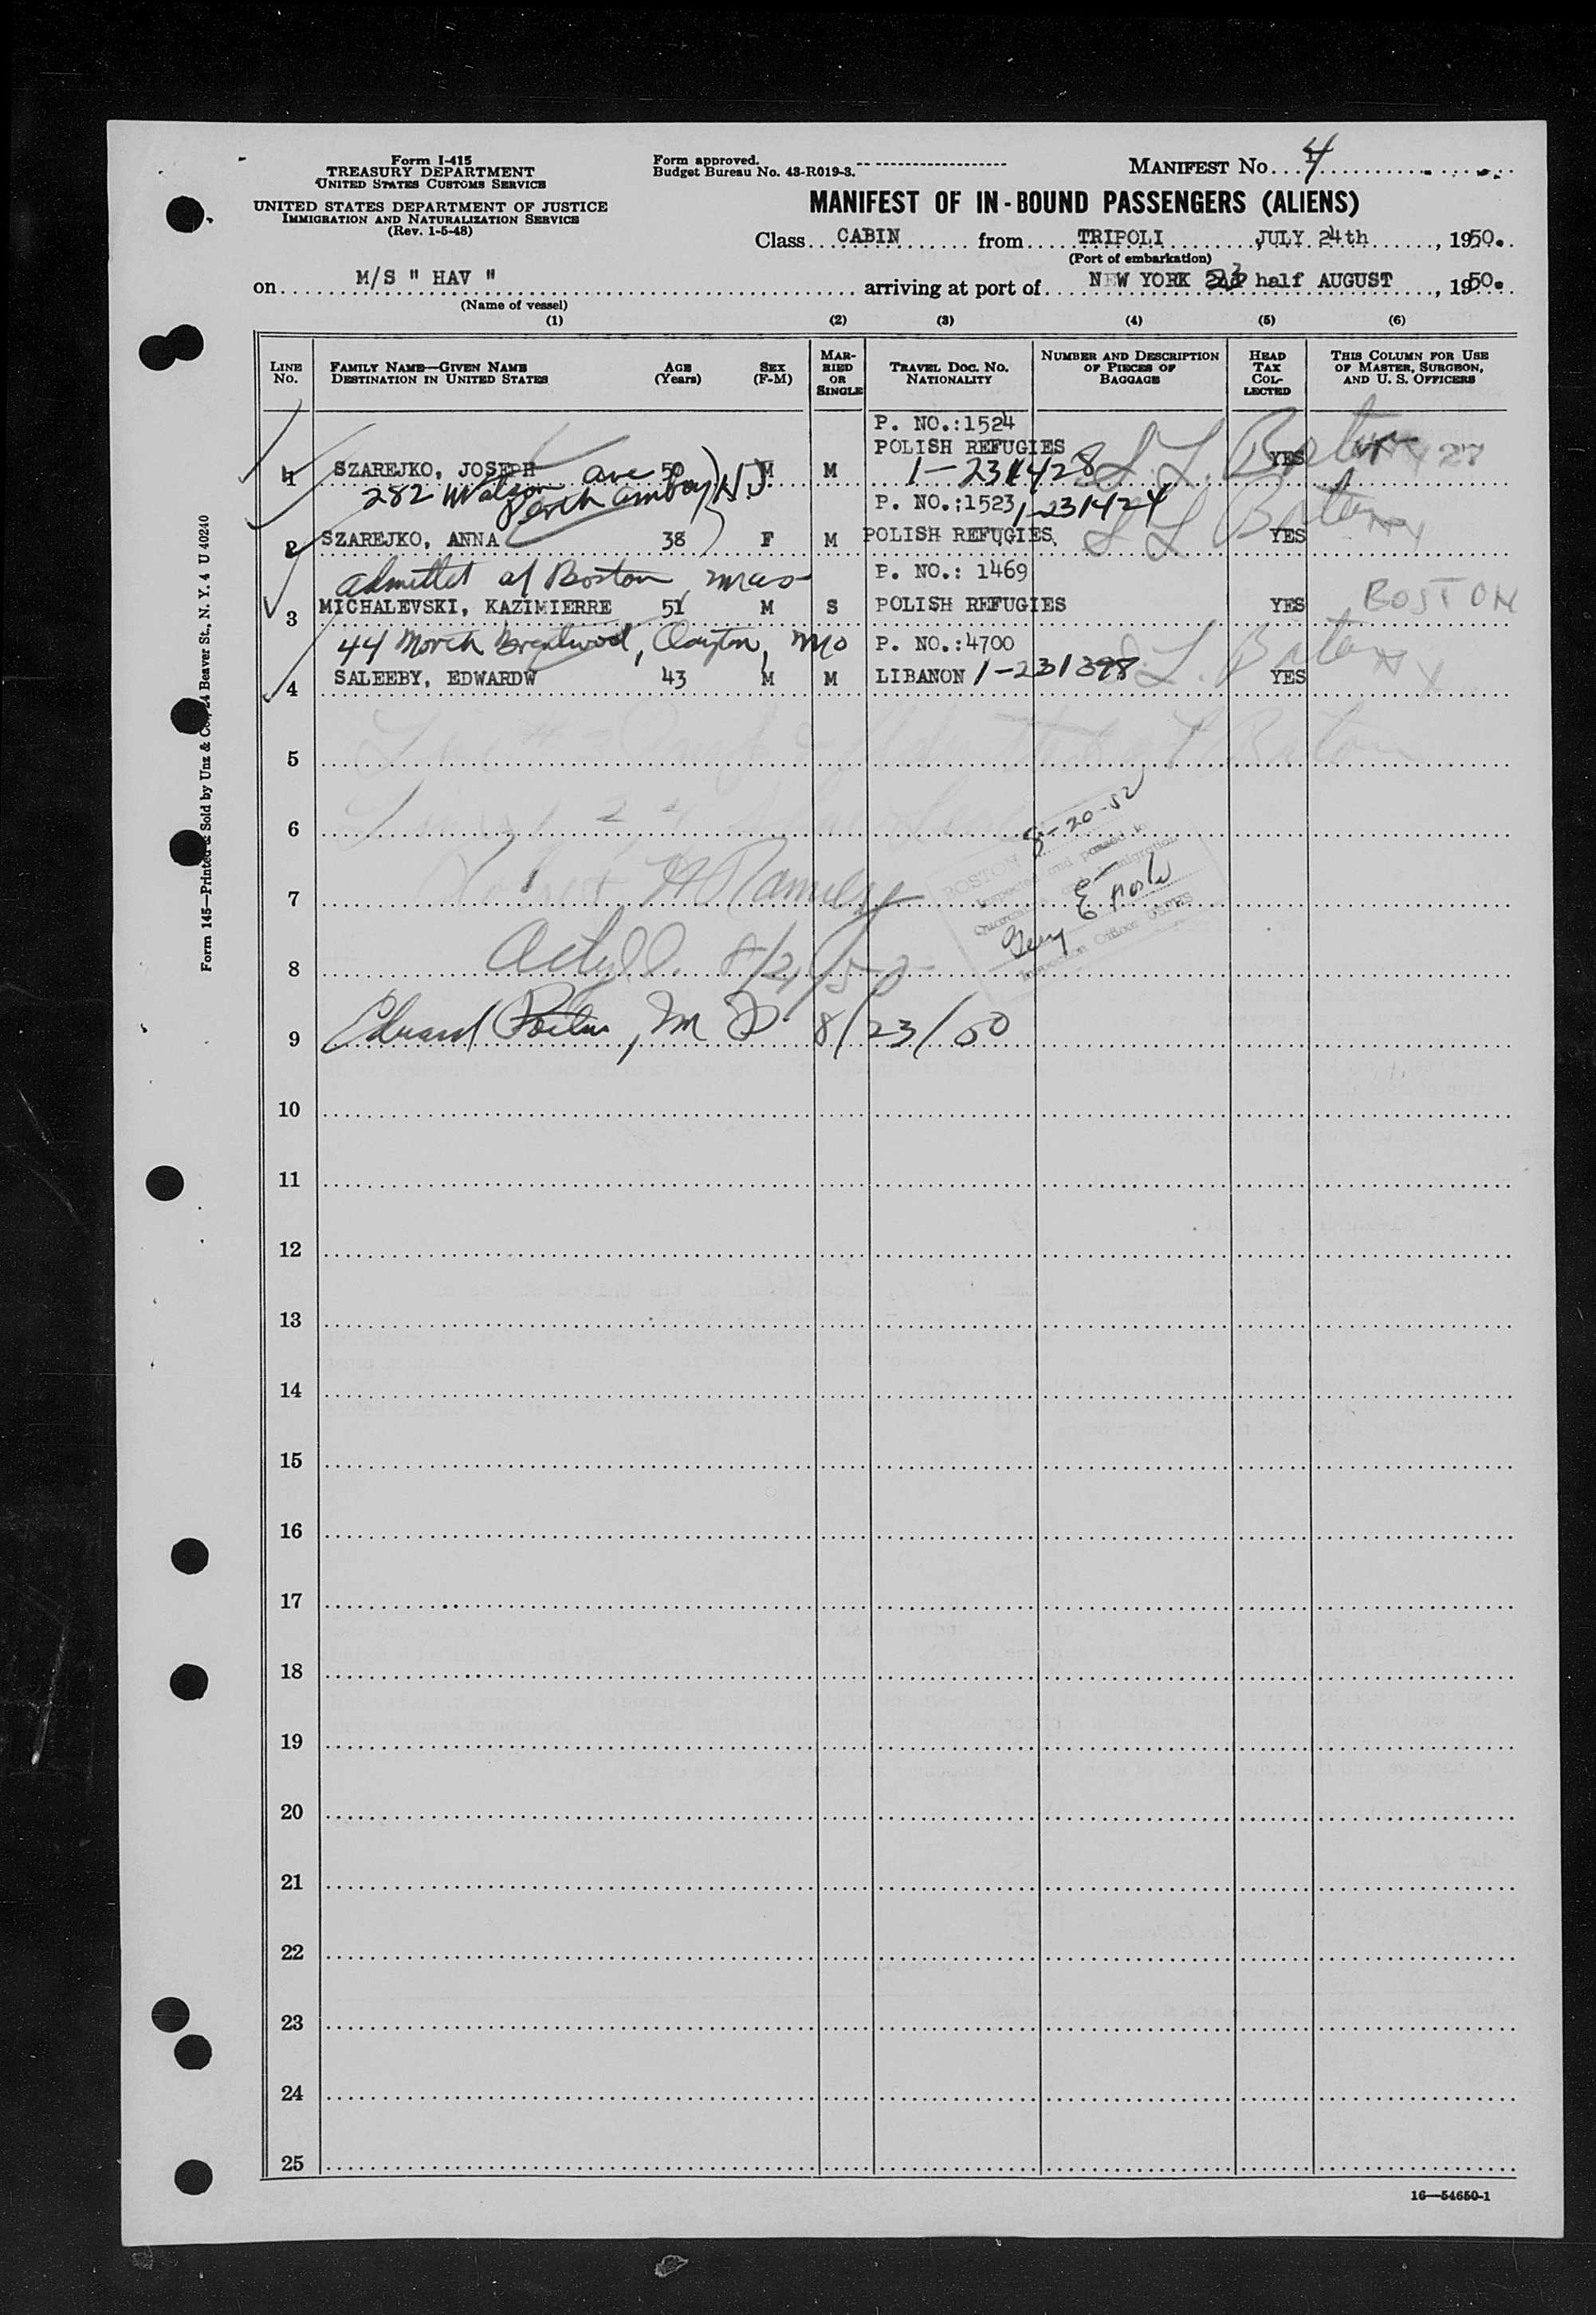 Form I-415
TREASURY DEPARTMENT
UNITED STATES CUSTOMS SERVICE
UNITED STATES DEPARTMENT OF JUSTICE
IMMIGRATION AND NATURALIZATION SERVICE
(Rev. 1-5-48)
Form approved.
Budget Bureau No. 43-R019-3.
MANIFEST No. 4
MANIFEST OF IN-BOUND PASSENGERS (ALIENS)
Class CABIN from TRIPOLI JULY 24th, 1950.
(Port of embarkation)
on M/S " HAV " arriving at port of NEW YORK half AUGUST, 1950.
(Name of vessel)
(1) (2) (3) (4) (5) (6)
LINE No. FAMILY NAME—GIVEN NAME DESTINATION IN UNITED STATES AGE (Years) SEX (F-M) MARRIED OR SINGLE TRAVEL DOC. NO. NATIONALITY NUMBER AND DESCRIPTION OF PIECES OF BAGGAGE HEAD TAX COLLECTED THIS COLUMN FOR USE OF MASTER, SURGEON, AND U. S. OFFICERS
P. NO.:1524
POLISH REFUGIES
1 SZAREJKO, JOSEPH 50 M M 1-231428 YES
282 Watson ave Perth Amboy NJ
P. NO.:1523 1-231424
2 SZAREJKO, ANNA 38 F M POLISH REFUGIES YES
admitted at Boston Mass P. NO.: 1469
3 MICHALEVSKI, KAZIMIERRE 51 M S POLISH REFUGIES YES BOSTON
44 North Brentwood, Clayton, Mo P. NO.:4700
4 SALEEBY, EDWARDW 43 M M LIBANON 1-231398 YES
5
6
8-20-50
BOSTON
Inspected and passed
7
8
9 Edward M D 8/23/50
10
11
12
13
14
15
16
17
18
19
20
21
22
23
24
25
16—54650-1
Form 145—Printed & Sold by Unz & Co., 24 Beaver St., N. Y. 4 U 40240